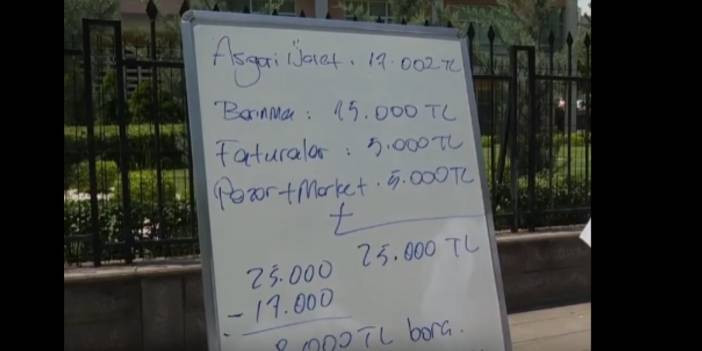 Asgari Ücret. 17.002 TL
Barınma : 15.000 TL
Faturalar : 5.000 TL
Pazar + Market. 5.000 TL
+
25.000 TL
25.000
- 17.000
8.000 TL borç.